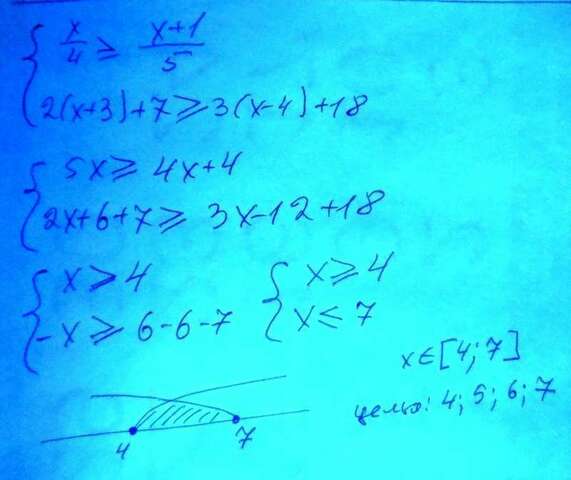 x/4 ≥ (x+1)/5
2(x+3)+7 ≥ 3(x-4)+18
5x ≥ 4x+4
2x+6+7 ≥ 3x-12+18
x ≥ 4
-x ≥ 6-6-7
x ≥ 4
x ≤ 7
x ∈ [4; 7]
целые: 4; 5; 6; 7
4 7